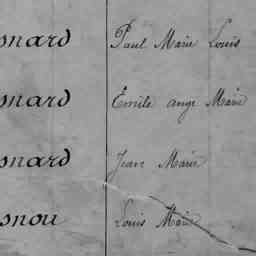 snard Paul Marie Louis
snard Émile ange Marie
snard Jean Marie
snou Louis Marie